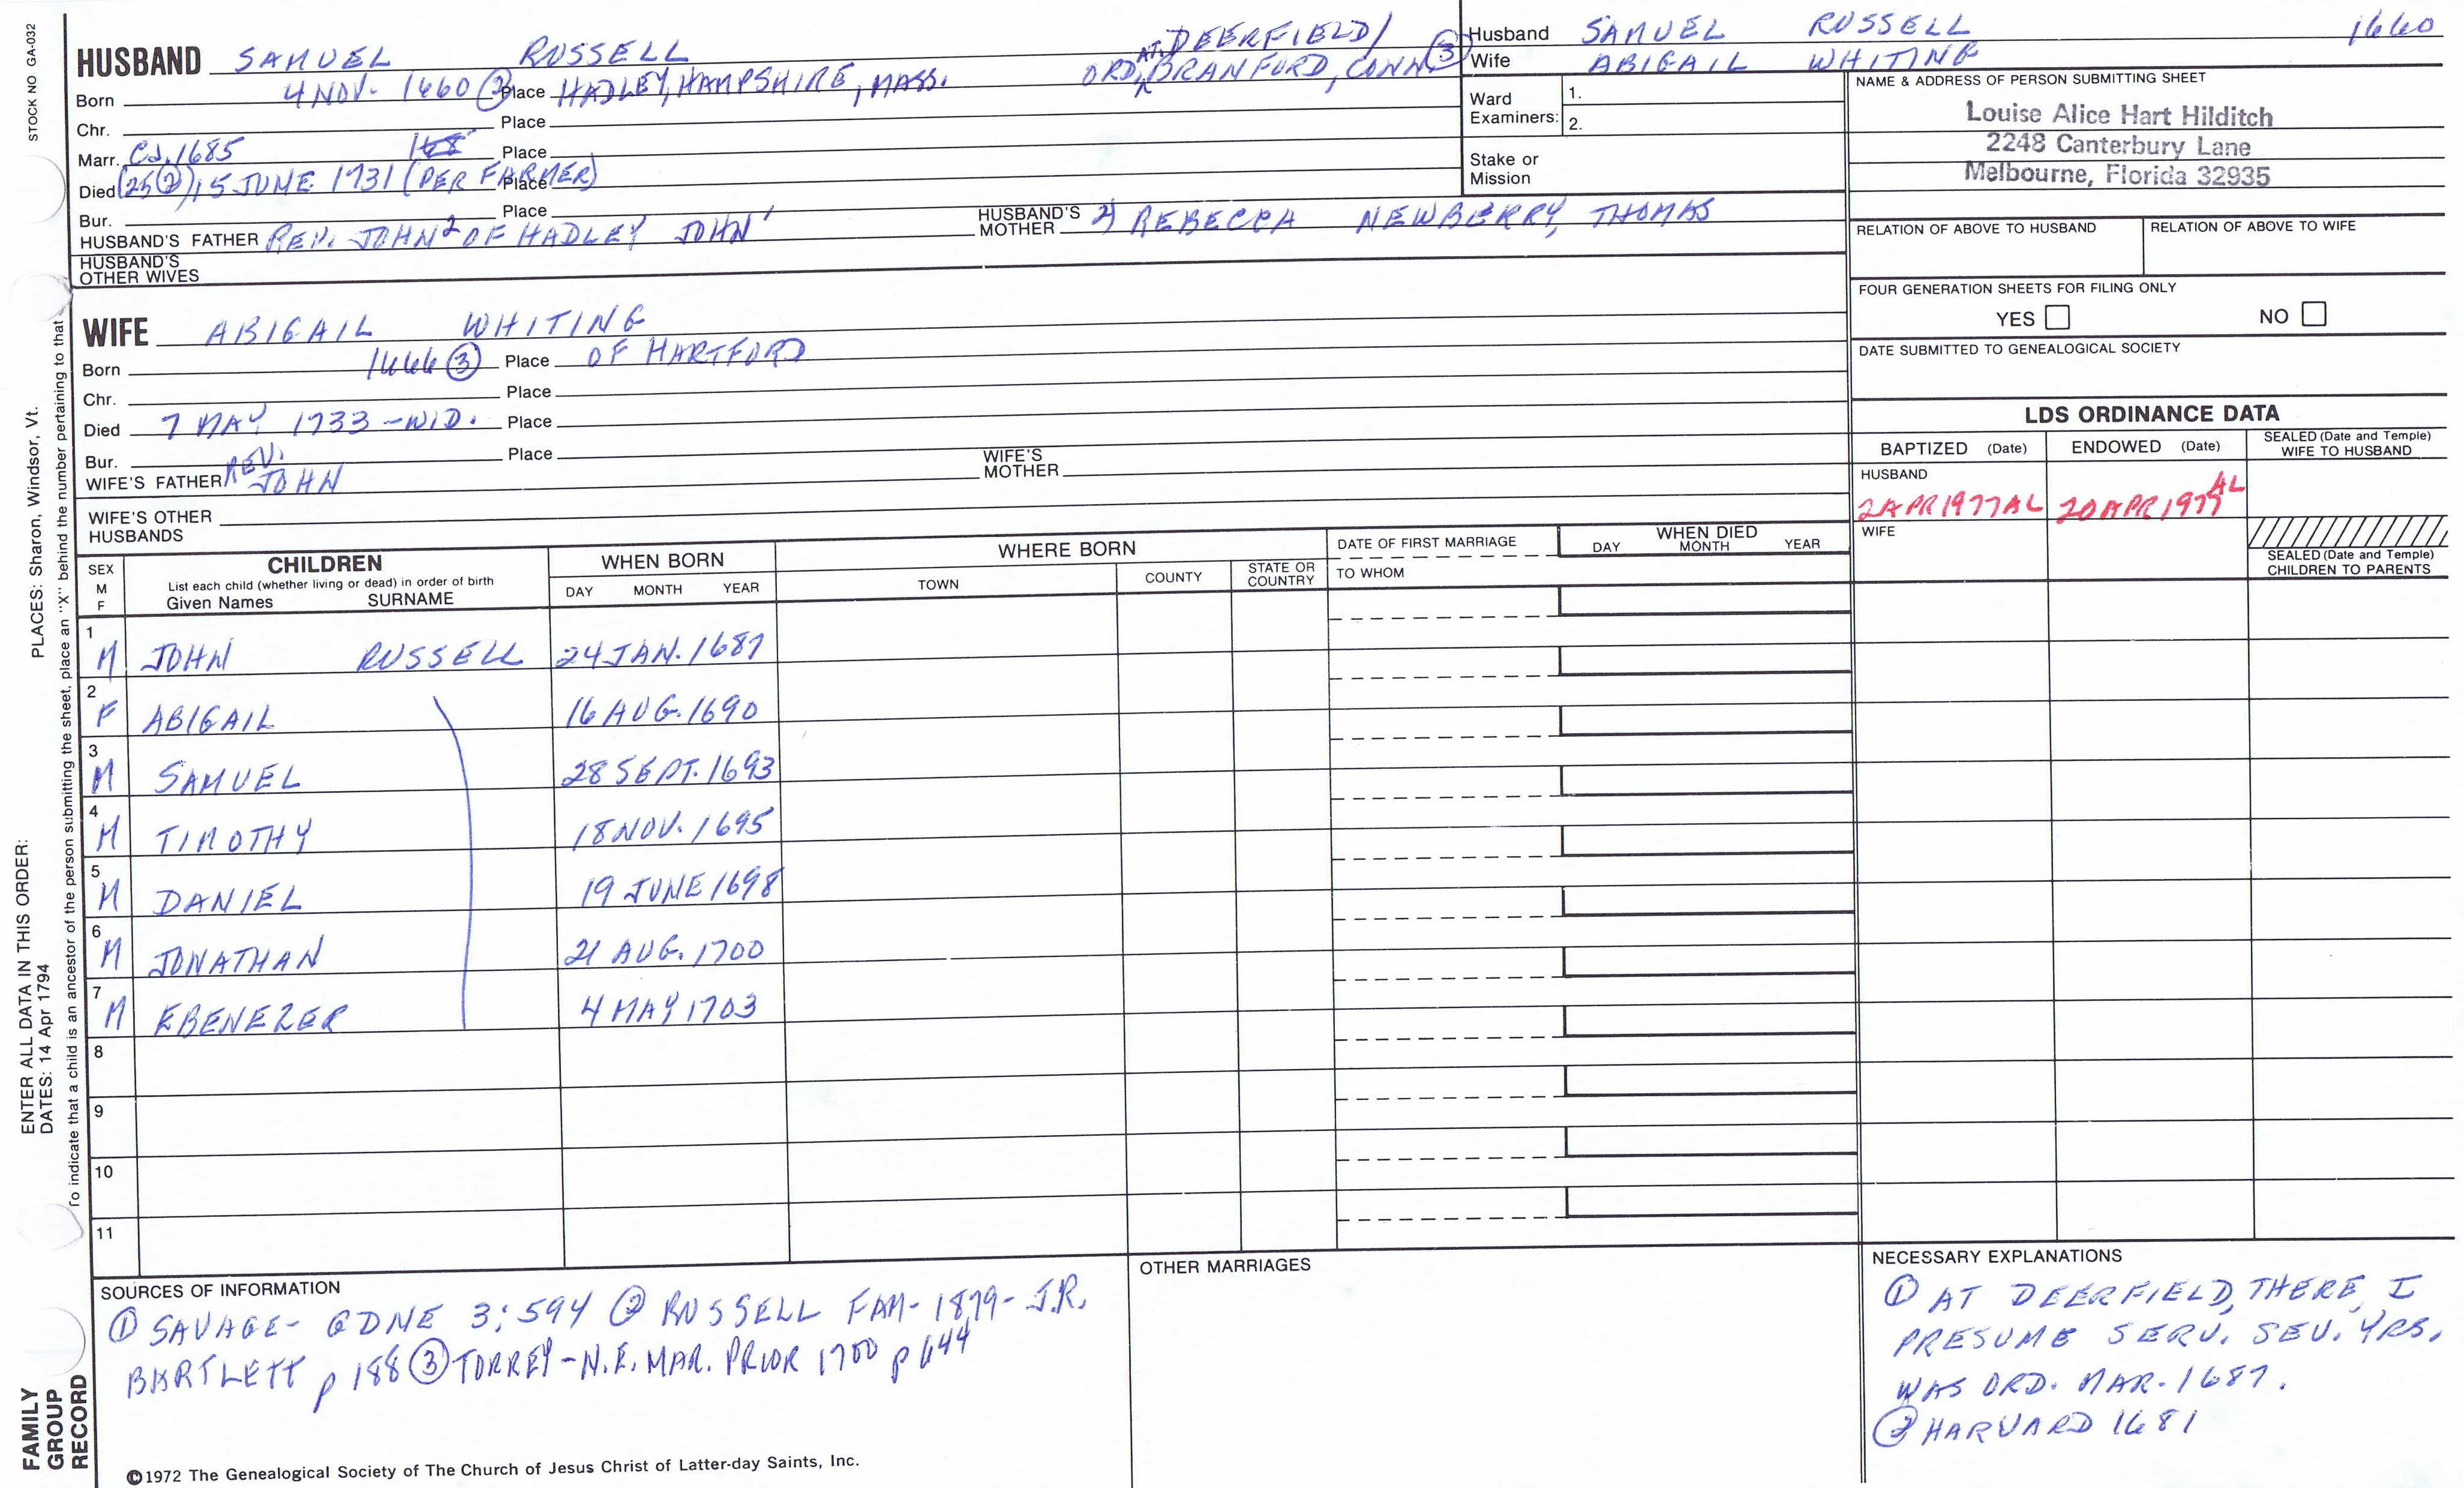 STOCK NO GA-032
HUSBAND SAMUEL RUSSELL
AT DEERFIELD/
ORD, BRANFORD, CONN ③
Born 4 NOV. 1660 ③ Place HADLEY, HAMPSHIRE, MASS.
Chr. Place
Marr. CA. 1685 168 Place
Died (25②), 5 JUNE 1731 (PER FARMER) Place
Bur. Place
HUSBAND'S FATHER REV. JOHN² OF HADLEY JOHN¹ HUSBAND'S MOTHER 2) REBECCA NEWBERRY, THOMAS
HUSBAND'S OTHER WIVES
Husband SAMUEL RUSSELL 1660
Wife ABIGAIL WHITING
Ward Examiners: 1.
2.
Stake or Mission
NAME & ADDRESS OF PERSON SUBMITTING SHEET
Louise Alice Hart Hilditch
2248 Canterbury Lane
Melbourne, Florida 32935
RELATION OF ABOVE TO HUSBAND RELATION OF ABOVE TO WIFE
FOUR GENERATION SHEETS FOR FILING ONLY
YES NO
DATE SUBMITTED TO GENEALOGICAL SOCIETY
WIFE ABIGAIL WHITING
Born 1666 ③ Place OF HARTFORD
Chr. Place
Died 7 MAY 1733 -WID. Place
Bur. Place
WIFE'S FATHER REV. JOHN WIFE'S MOTHER
WIFE'S OTHER HUSBANDS
LDS ORDINANCE DATA
BAPTIZED (Date) ENDOWED (Date) SEALED (Date and Temple) WIFE TO HUSBAND
HUSBAND
2 APR 1977 AL 20 APR 1977 AL
WIFE
SEALED (Date and Temple) CHILDREN TO PARENTS
SEX M F
CHILDREN
List each child (whether living or dead) in order of birth
Given Names SURNAME
WHEN BORN
DAY MONTH YEAR
WHERE BORN
TOWN COUNTY STATE OR COUNTRY
DATE OF FIRST MARRIAGE
TO WHOM
WHEN DIED
DAY MONTH YEAR
1 M JOHN RUSSELL 24 JAN. 1687
2 F ABIGAIL 16 AUG. 1690
3 M SAMUEL 28 SEPT. 1693
4 M TIMOTHY 18 NOV. 1695
5 M DANIEL 19 JUNE 1698
6 M JONATHAN 21 AUG. 1700
7 M EBENEZER 4 MAY 1703
8
9
10
11
SOURCES OF INFORMATION
① SAVAGE- GDNE 3:594 ② RUSSELL FAM- 1879- J.R.
BARTLETT p 188 ③ TORREY - N.E. MAR. PRIOR 1700 p 644
©1972 The Genealogical Society of The Church of Jesus Christ of Latter-day Saints, Inc.
OTHER MARRIAGES
NECESSARY EXPLANATIONS
① AT DEERFIELD, THERE, I
PRESUME SERV. SEV. YRS.
WAS ORD. MAR. 1687.
② HARVARD 1681
FAMILY
GROUP
RECORD
ENTER ALL DATA IN THIS ORDER:
DATES: 14 Apr 1794
PLACES: Sharon, Windsor, Vt.
To indicate that a child is an ancestor of the person submitting the sheet, place an "X" behind the number pertaining to that